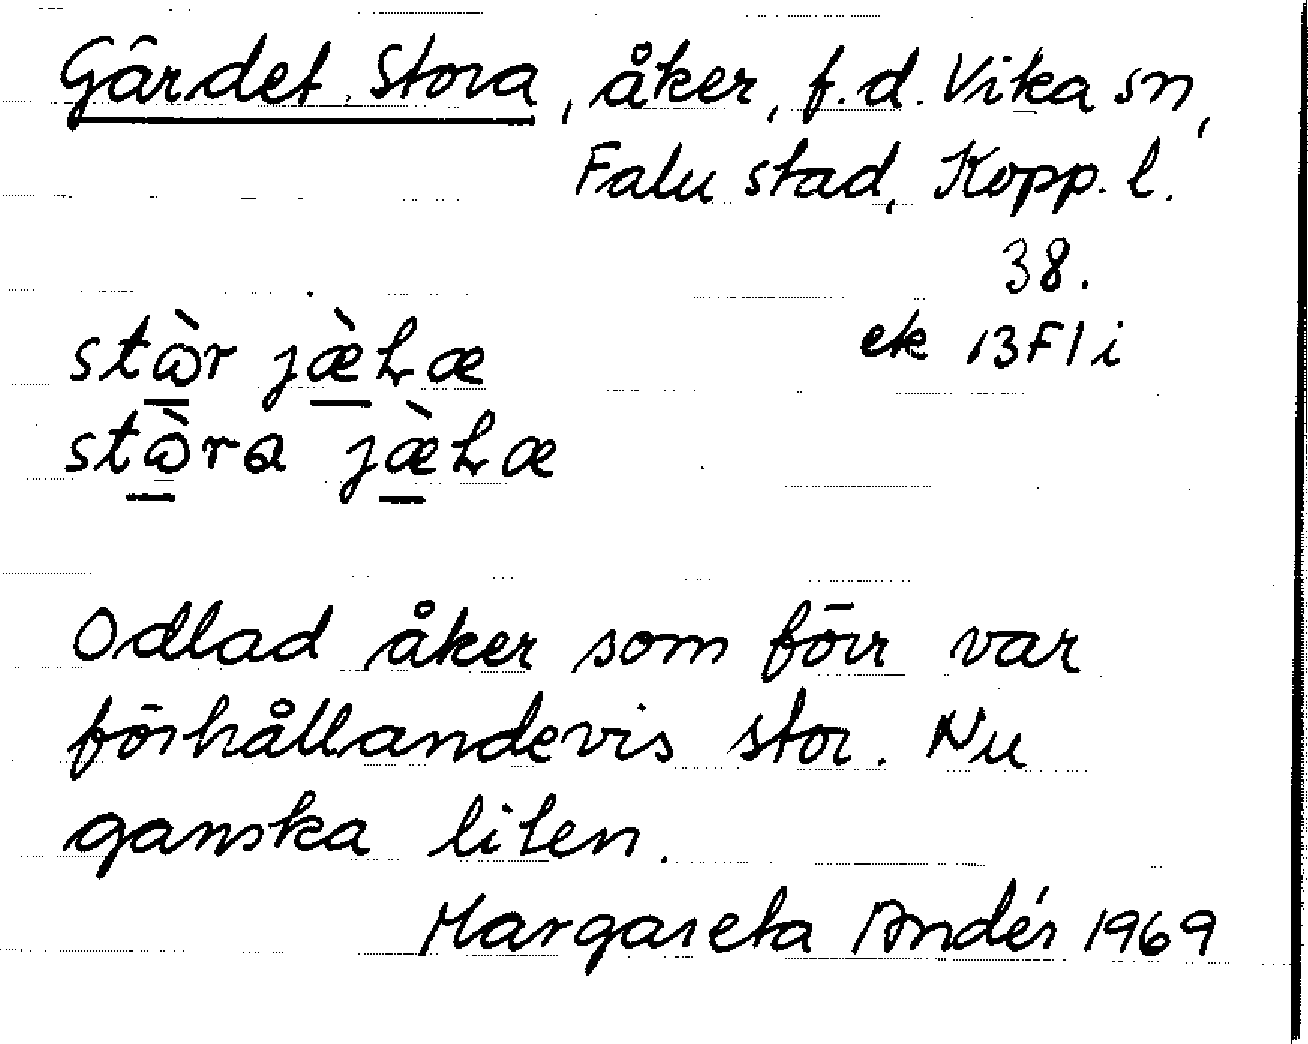 Gärdet, Stora, åker, f.d. Vika sn,
Falu stad, Kopp. l.
38.
ek 13F1i
stὼr jæ̀Læ
stὼra jæ̀Læ
Odlad åker som förr var
förhållandevis stor. Nu
ganska liten.
Margareta Andér 1969